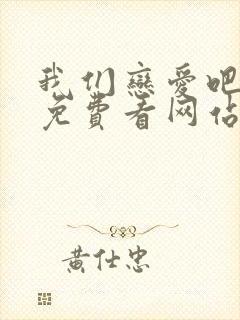 我们恋爱吧
免费看网站
黄仕忠